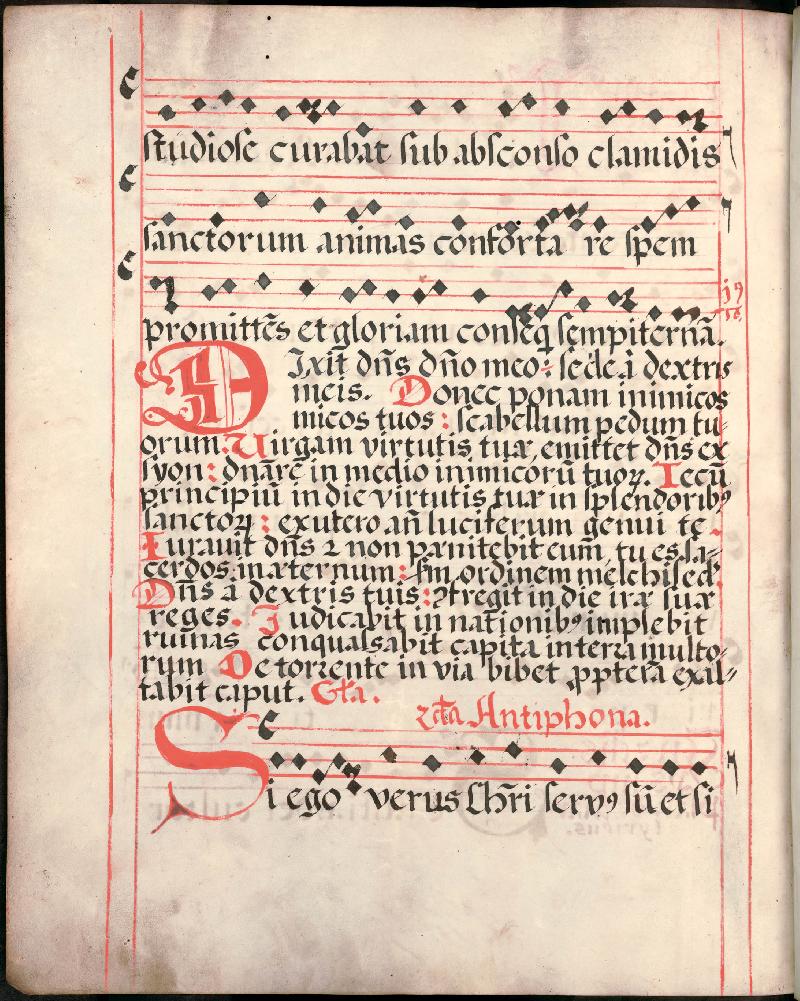 studiose curabat sub absconso clamidis
sanctorum animas conforta re spem
promittēs et gloriam conseq̄ sempiternā.
Dixit dn̄s dn̄o meo: sede à dextris
meis. Donec ponam inimicos
micos tuos: scabellum pedum tu-
orum. Uirgam virtutis tuæ, emittet dn̄s ex
syon: dn̄are in medio inimicorū tuoꝝ. Tecū
principiū in die virtutis tuæ in splendoribꝰ
sanctoꝝ: ex utero añ luciferum genui te.
Iurauit dn̄s ⁊ non pænitebit eum, tu es sa-
cerdos in æternum: sm̄ ordinem melchisedꝭ.
Dn̄s à dextris tuis: ꝯfregit in die iræ suæ
reges. Iudicabit in nat̄ionibꝰ implebit
ruinas conqualsabit capita in terra multo-
rum De torrente in via bibet ꝓpterà exal-
tabit caput. Gl̄a.
2c̄ta Antiphona.
Si ego verus Chr̄i servꝰ sū et si